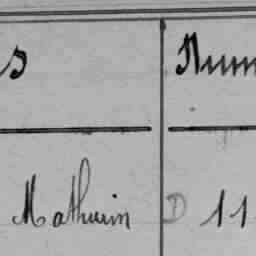 s Num
Mathurin D 11